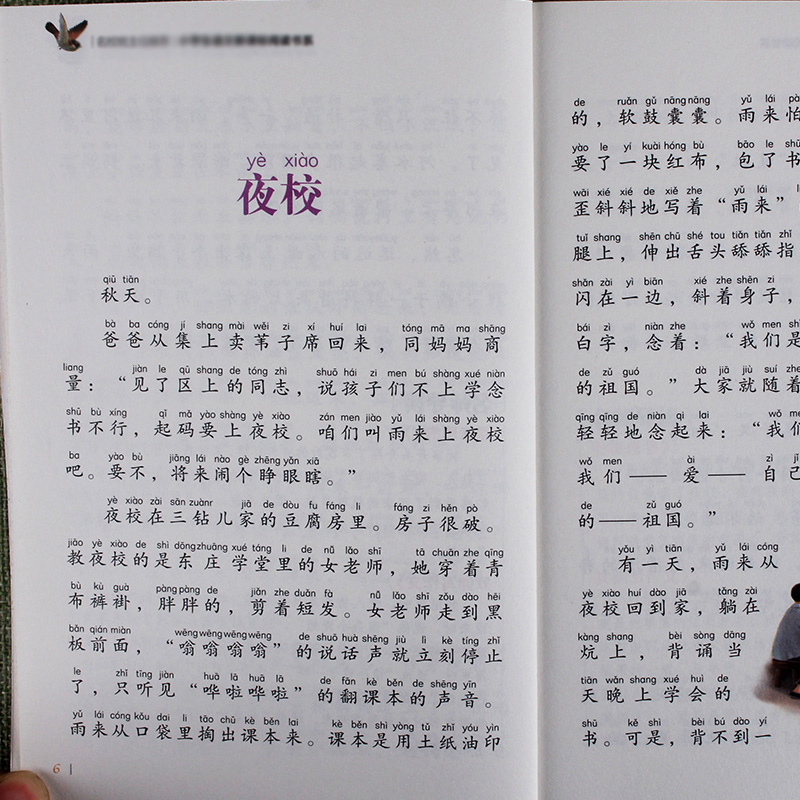 yè xiào
夜校
qiū tiān
秋天。
bà ba cóng jí shang mài wěi zi xí huí lai tóng mā ma shāng
爸爸从集上卖苇子席回来，同妈妈商
liang jiàn le qū shang de tóng zhì shuō hái zi men bú shàng xué niàn
量：“见了区上的同志，说孩子们不上学念
shū bù xíng qǐ mǎ yào shàng yè xiào zán men jiào yǔ lái shàng yè xiào
书不行，起码要上夜校。咱们叫雨来上夜校
ba yào bù jiāng lái nào gè zhēng yǎn xiā
吧。要不，将来闹个睁眼瞎。”
yè xiào zài sān zuànr jiā de dòu fu fáng li fáng zi hěn pò
夜校在三钻儿家的豆腐房里。房子很破。
jiāo yè xiào de shì dōng zhuāng xué táng li de nǚ lǎo shī tā chuān zhe qīng
教夜校的是东庄学堂里的女老师，她穿着青
bù kù guà pàng pàng de jiǎn zhe duǎn fà nǚ lǎo shī zǒu dào hēi
布裤褂，胖胖的，剪着短发。女老师走到黑
bǎn qián miàn wēng wēng wēng wēng de shuō huà shēng jiù lì kè tíng zhǐ
板前面，“嗡嗡嗡嗡”的说话声就立刻停止
le zhǐ tīng jiàn huā lā huā lā de fān kè běn de shēng yīn
了，只听见“哗啦哗啦”的翻课本的声音。
yǔ lái cóng kǒu dai li tāo chū kè běn lai kè běn shì yòng tǔ zhǐ yóu yìn
雨来从口袋里掏出课本来。课本是用土纸油印
6
de ruǎn gǔ nāng nāng yǔ lái pà
的，软鼓囊囊。雨来怕
yào le yí kuài hóng bù bāo le shū
要了一块红布，包了书
wāi xié xié de xiě zhe yǔ lái
歪斜斜地写着“雨来”
tuǐ shang shēn chū shé tou tiǎn tiǎn zhǐ
腿上，伸出舌头舔舔指
shǎn zài yì biān xié zhe shēn zi
闪在一边，斜着身子，
bái zì niàn zhe wǒ men shì
白字，念着：“我们是
de zǔ guó dà jiā jiù suí zhe
的祖国。”大家就随着
qīng qīng de niàn qi lai wǒ men
轻轻地念起来：“我们
wǒ men ài zì jǐ
我们——爱——自己
de zǔ guó
的——祖国。”
yǒu yì tiān yǔ lái cóng
有一天，雨来从
yè xiào huí dào jiā tǎng zài
夜校回到家，躺在
kàng shang bèi sòng dàng
炕上，背诵当
tiān wǎn shang xué huì de
天晚上学会的
shū kě shì bèi bú dào yí
书。可是，背不到一